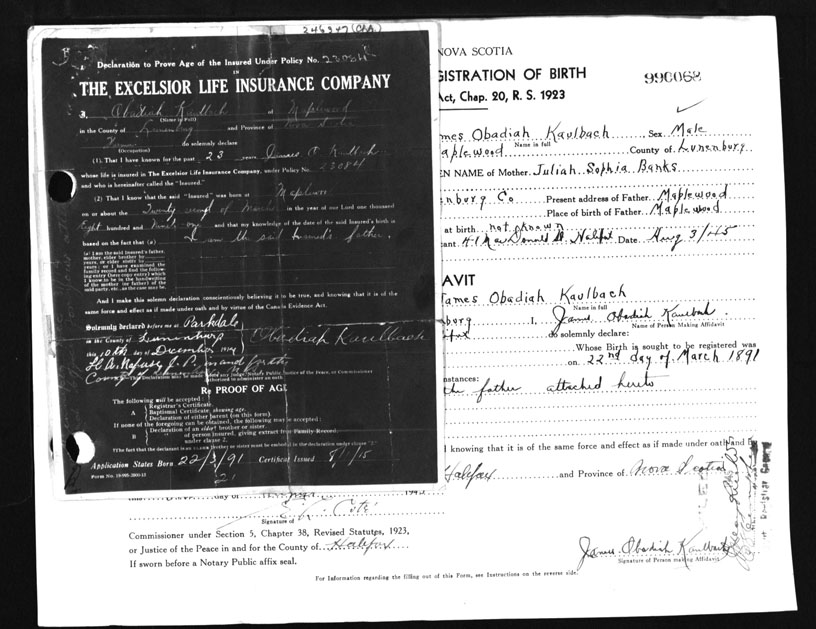 246947 (CAA)
Declaration to Prove Age of the Insured Under Policy No. 23084
IN
THE EXCELSIOR LIFE INSURANCE COMPANY
I, Obadiah Kaulbach of Maplewood
(Name in Full)
in the County of Lunenburg and Province of Nova Scotia
do solemnly declare
(Occupation)
(1). That I have known for the past 23 years James O. Kaulbach
whose life is insured in The Excelsior Life Insurance Company, under Policy No. 23084
and who is hereinafter called the "Insured."
(2) That I know that the said "Insured" was born at Maplewood
on or about the Twenty second of March in the year of our Lord one thousand
Eight hundred and Ninety one, and that my knowledge of the date of the said Insured's birth is
based on the fact that (a) I am the said Insured's father.
(a) I am the said Insured's father,
mother, elder brother by
years, or elder sister by
years; or I have examined the
family record and find the following
entry (here copy entry) which
I know to be in the handwriting
of the mother (or father) of the
said party, etc., as the case may be.
And I make this solemn declaration conscientiously believing it to be true, and knowing that it is of the
same force and effect as if made under oath and by virtue of the Canada Evidence Act.
Solemnly declared before me at Parkdale
in the County of Lunenburg
this 10th day of December 1914
Obadiah Kaulbach
authorized to administer an oath
Re PROOF OF AGE
The following will be accepted:
A
Registrar's Certificate.
Baptismal Certificate, showing age.
Declaration of either parent (on this form).
If none of the foregoing can be obtained, the following may be accepted:
B
Declaration of an elder brother or sister
of person insured, giving extract from Family Record.
under clause 2.
Application States Born 22/3/91 Certificate Issued 8/1/15
NOVA SCOTIA
GISTRATION OF BIRTH
990068
Act, Chap. 20, R. S. 1923
ames Obadiah Kaulbach Sex Male
Name in full
aplewood County of Lunenburg
EN NAME of Mother Juliah Sophia Banks
enburg Co Present address of Father Maplewood
Place of birth of Father Maplewood
at birth not known
cant 41 MacDonald St Halifax Date Aug 3/45
AVIT
James Obadiah Kaulbach
Name in full
nburg I, James Obadiah Kaulbach
Name of Person Making Affidavit
fax do solemnly declare:
Whose Birth is sought to be registered was
on 22nd day of March 1891
nstances:
the father attached hereto
d knowing that it is of the same force and effect as if made under oath and
Halifax and Province of Nova Scotia
day of
Signature of
Commissioner under Section 5, Chapter 38, Revised Statutes, 1923,
or Justice of the Peace in and for the County of Halifax
If sworn before a Notary Public affix seal.
James Obadiah Kaulbach
Signature of Person making Affidavit
For Information regarding the filling out of this Form, see Instructions on the reverse side.